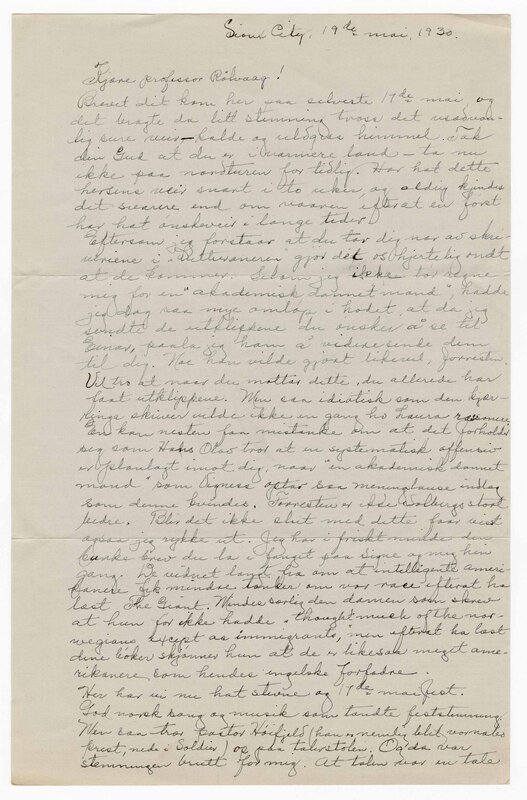 Sioux City, 19de mai, 1930.
Kjære professor Rølvaag!
Brevet dit kom her paa selveste 17de mai, og
det bragte da litt stemning tross det usedvan-
lig sure veir – kalde og uldgraa himmel. Tak
den Gud at du er i varmere land – ta nu
ikke paa nordturen for tidlig. Har hat dette
hersens veir snart i to uker, og aldrig kjendes
det svarere end om vaaren efterat en først
har hat ønskeveir i lange tider.
Eftersom jeg forstaar at du tar dig nær av skri-
veriene i "Decorah" gjør det os hjertelig ondt
at de kommer. Selvom jeg ikke tør regne
meg for en "akademisk dannet mand", hadde
jeg dog saa mye omløp i hodet, at da jeg
sendte de utklippene du ønsker å se til
Einar, paala jeg ham å videresende dem
til dig. Noe han vilde gjort likevel, forresten.
Vil tro at naar du mottar dette, du allerede har
faat utklippene. Men saa idiotisk som den kjær-
rings skriver vilde ikke en gang ho Laura
En kan nesten faa mistanke om at det forholder
seg som Hans Olav tror at en systematisk offensiv
er planlagt imot dig, naar "en akademisk dannet
mand" som Signess optar saa meningsløse indlæg
som denne kvindes. Forresten er ikke Solbergs stort
bedre. Blir det ikke slut med dette faar vist
ogsaa jeg rykke ut. Jeg har i friskt minde den
bunke brev du la i fanget paa Signe og mig hin
gang. De vidnet langt fra om at intelligente ameri-
kanere fik mindre tanker om vor race efterat ha
læst The Giant. Mindes særlig den damen som skrev
at hun før ikke hadde "thought much of the nor-
wegians except as immigrants, men efterat ha læst
dine bøker skjønner hun at de er likesaa meget ame-
rikanere som hendes engelske forfædre.
Her har vi nu hat stevne og 17de mai fest.
God norsk sang og musik som tændte feststemning.
Men saa tror Pastor (han er nemlig blet vor nabo
prest, nede i Soldier) op paa talerstolen. Og da var
stemningen brutt for mig. At talen var en tale